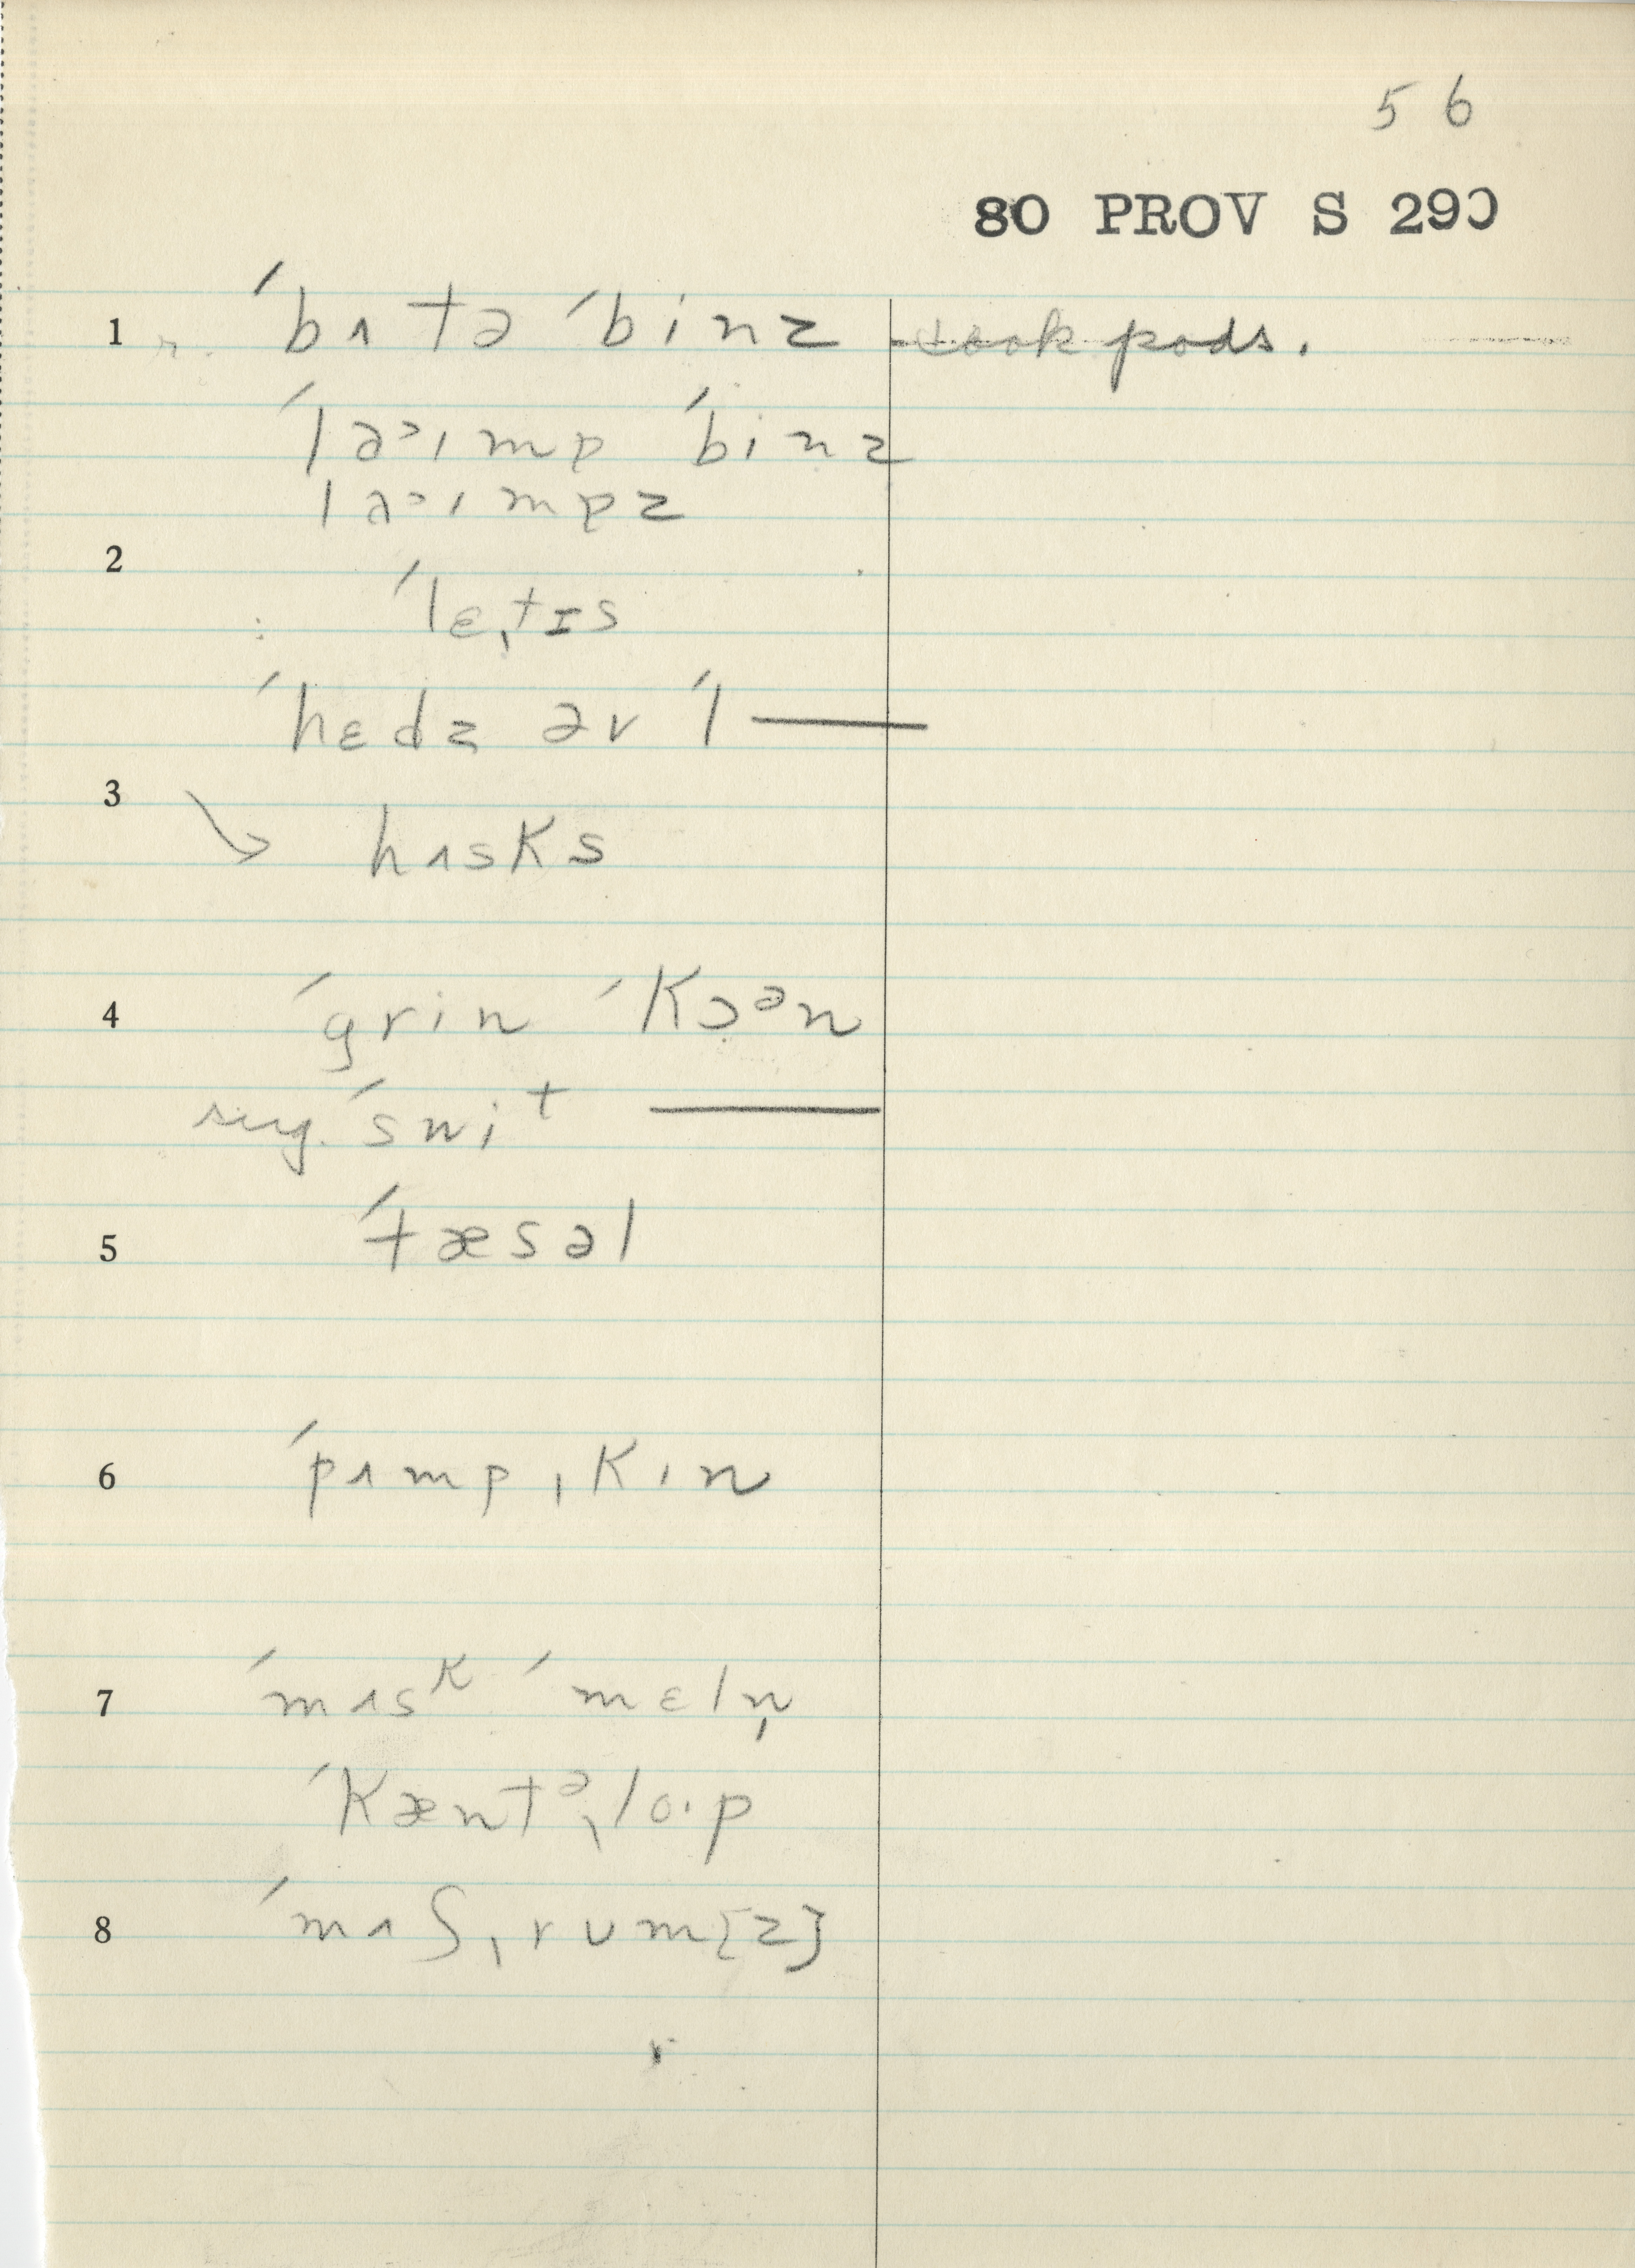 56
80 PROV S 290
1 ˈbʌtə ˈbinz cook pods.
ˈlaˑɪmp ˈbinz
laˑɪmpz
2
ˈlɛˌtɪs
ˈhɛdz əv ˈl —
3
→ hʌsks
4 ˈgrin ˈkɔᵊn
sug. ˈswit —
5 ˈtæsəl
6 ˈpʌmpˌkɪn
7 ˈmʌsᵏ ˈmɛln̩
ˈkæntᵊˌloˑp
8 ˈmʌʃˌrum[z]